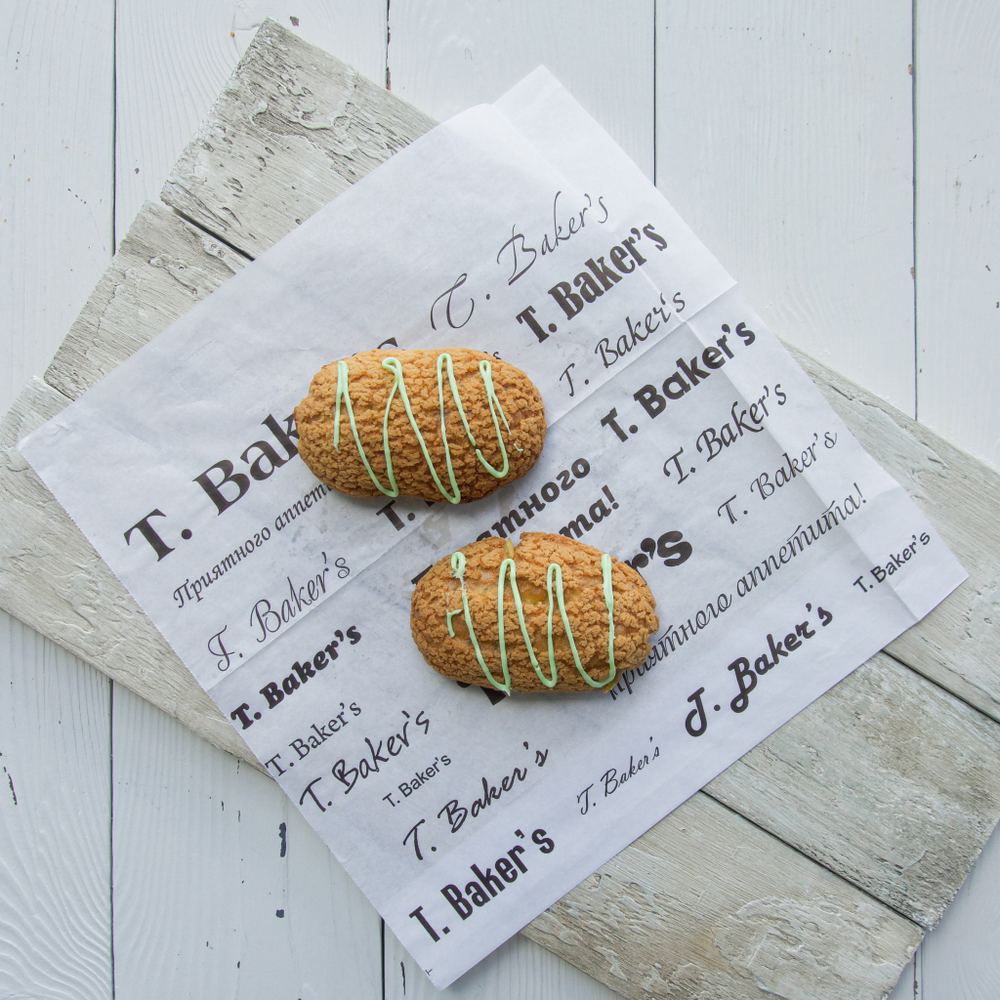 T. Baker's
T. Baker's
T. Baker's
T. Baker's
T. Baker's
T. Baker's
T. Bak
Приятного аппет
ятного
та!
T. Baker's
T.
r's
Приятного аппетита!
T. Baker's
T. Baker's
T. Baker's
T. Baker's
T. Baker's
T. Baker's
T. Baker's
T. Baker's
T. Baker's
T. Baker's